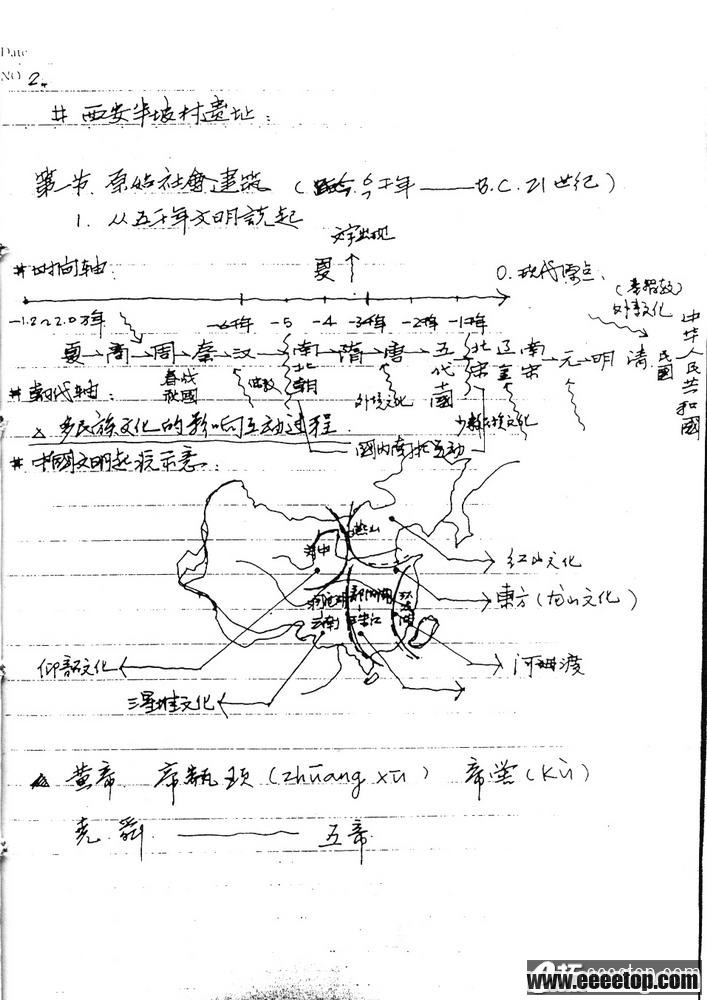 Date
NO 2.
# 西安半坡村遗址:
第一节. 原始社會建筑 (距今.6千年 —— B.C. 21世纪)
1. 从五千年文明説起
文字出现
#时间轴:
夏
0. 现代原点.
-1.2~2.0万年 -6千年 -5 -4 -3千年 -2千年 -1千年
外事文化
夏 商 周 秦 汉 南北朝 隋 唐 五代十國 北宋 辽金 南宋 元 明 清 民國 中华人民共和國
#朝代轴:
春战秋國
外域文化
少數民族文化
△ 多民族文化的影响互动过程
國内南北互动
#中國文明起流示意:
燕山
红山文化
東方(龙山文化)
云南
珠江
仰韶文化
河姆渡
三星堆文化
△ 黄帝 帝瓶顼(zhuāng xū) 帝喾(kù)
尭.舜 —— 五帝.
www.eeeetop.com